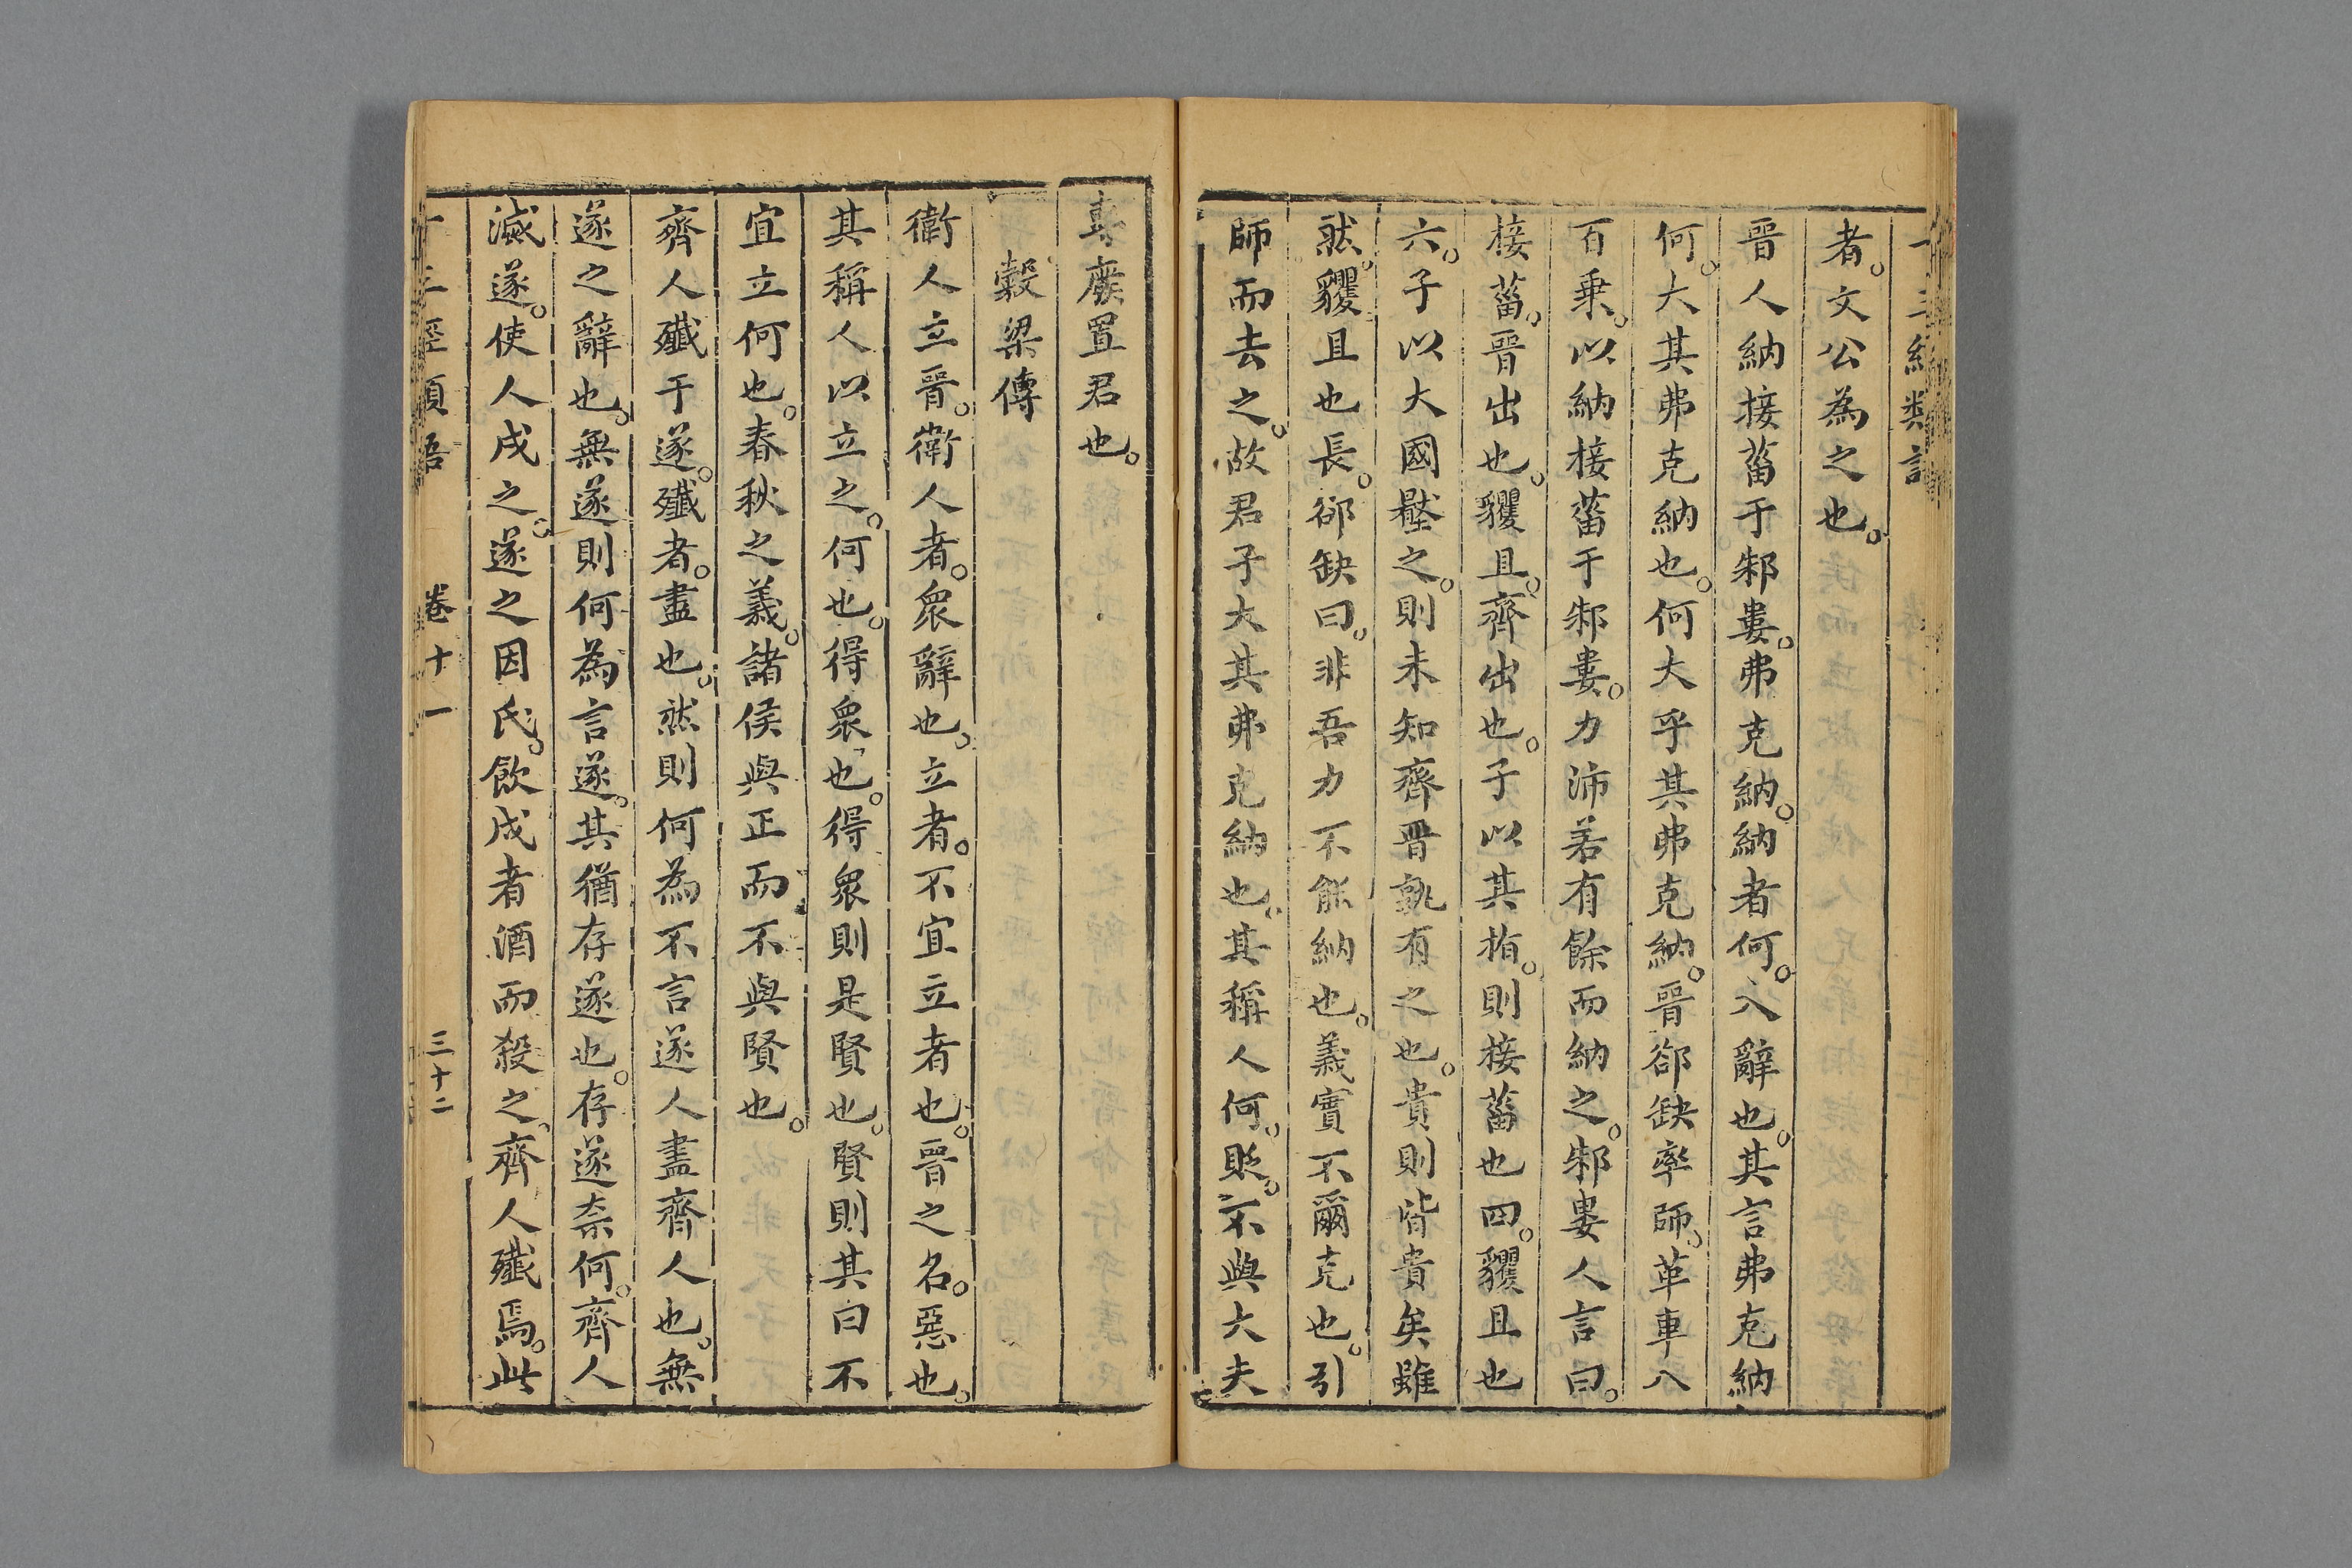 十三經類語
者。文公為之也。
晋人納接菑于邾婁。弗克納。納者何。入辭也。其言弗克納
何。大其弗克納也。何大乎其弗克納。晋郤缺率師。革車八
百乗。以納接菑于邾婁。力沛若有餘而納之。邾婁人言曰。
接菑。晋出也。貜且。齊出也。子以其指。則接菑也四。貜且也
六。子以大國壓之。則未知齊晋孰有之也。貴則皆貴矣雖
然。貜且也長。郤缺曰。非吾力不能納也。義實不爾克也。引
師而去之。故君子大其弗克納也。其稱人何。貶。不與大夫
專廢置君也。
榖梁傳
衛人立晋。衛人者。眾辭也。立者。不宜立者也。晋之名。惡也。
其稱人以立之。何也。得眾也。得眾則是賢也。賢則其曰不
宜立何也。春秋之義。諸侯與正而不與賢也。
齊人殲于遂。殲者。盡也。然則何為不言遂人盡齊人也。無
遂之辭也。無遂則何為言遂。其猶存遂也。存遂奈何。齊人
滅遂。使人戍之。遂之因氏。飲戍者酒而殺之。齊人殲焉。此
十三經類語 卷十一 三十二